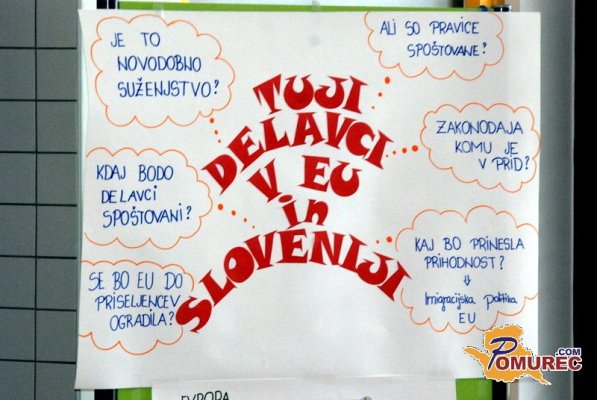 JE TO
NOVODOBNO
SUŽENJSTVO?
ALI SO PRAVICE
SPOŠTOVANE?
TUJI
DELAVCI
V EU
in
SLOVENIJI
ZAKONODAJA
KOMU JE
V PRID?
KDAJ BODO
DELAVCI
SPOŠTOVANI?
KAJ BO PRINESLA
PRIHODNOST?
⇓
Imigracijska politika
EU
SE BO EU DO
PRISELJENCEV
OGRADILA?
POMUREC.COM
EVROPA